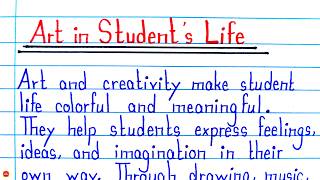 Art in Student's Life
Art and creativity make student
life colorful and meaningful.
They help students express feelings,
ideas, and imagination in their
own way. Through drawing, music,